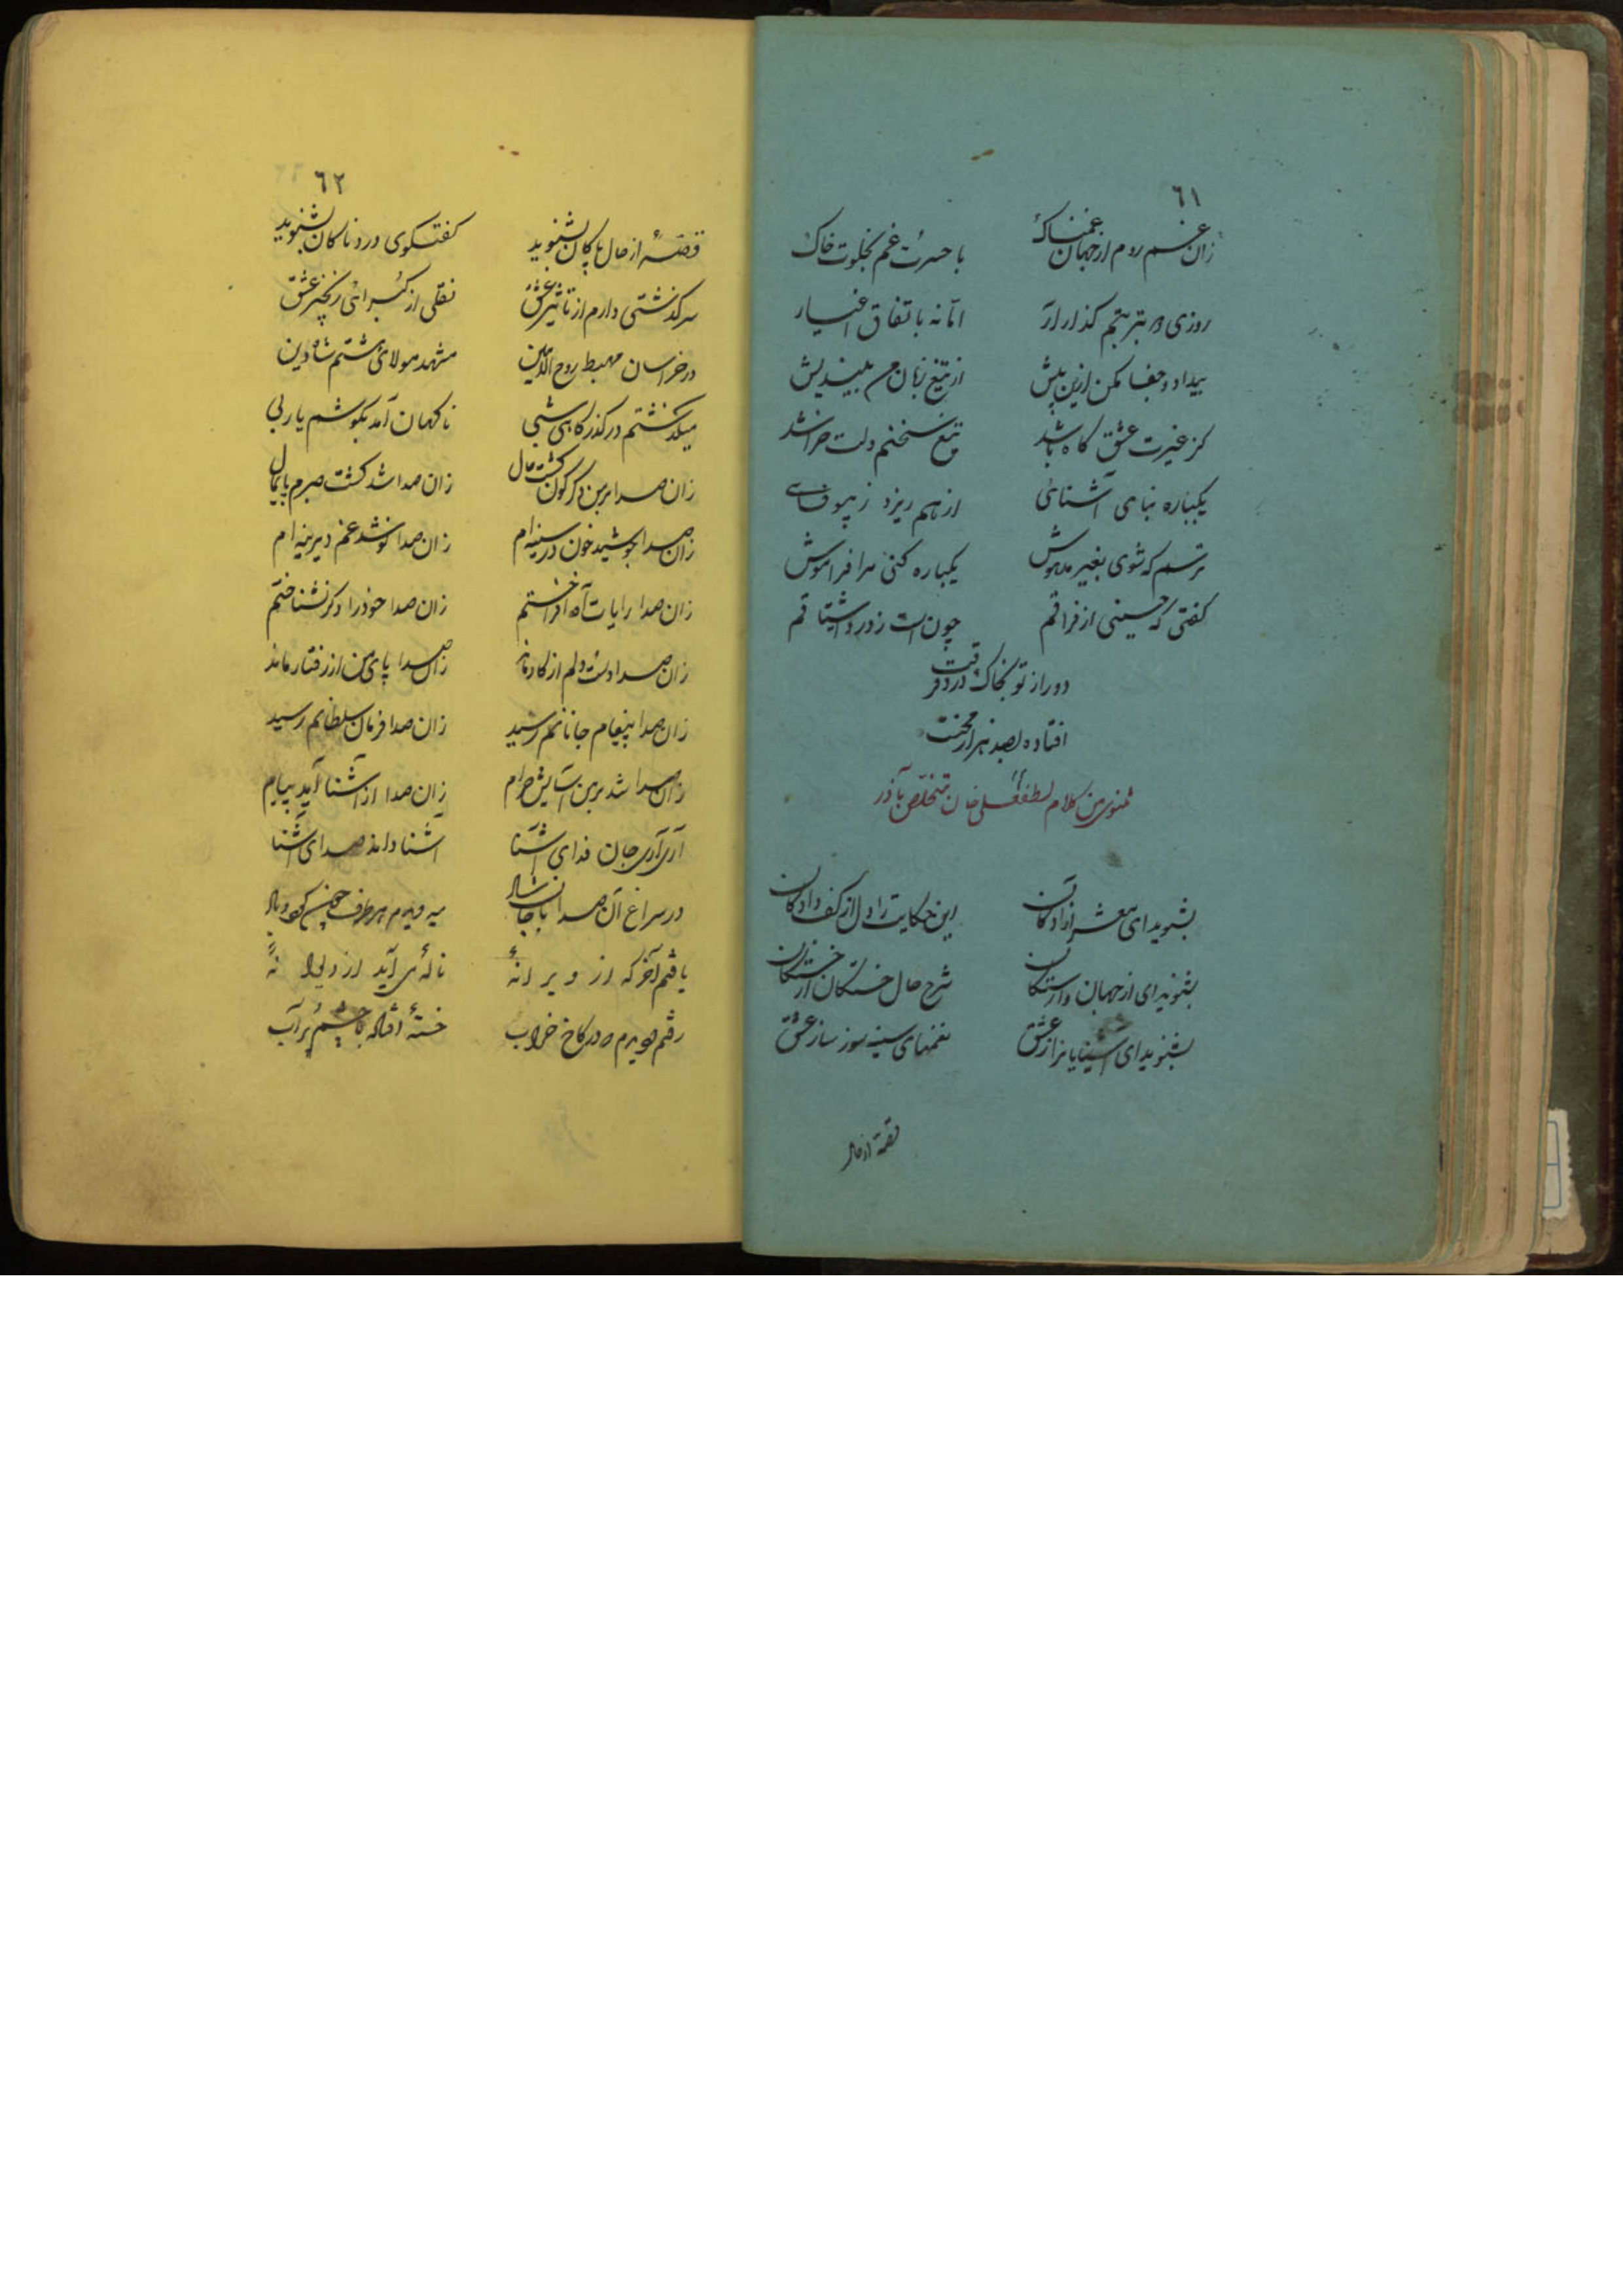 ٦١
زان غم روم از جهان غمناک با حسرت غم بخلوت خاک
روزی بر تربتم گذار آر اما نه باتفاق اغیار
بیداد و جفا مکن ازین بیش از تیغ زبان من بیندیش
کز غیرت عشق گاه باشد تیغ سخنم دلت خراشد
یکباره بنای آشنائی از هم ریزد ز بیوفائی
ترسم که شوی بغیر مدهوش یکباره کنی مرا فراموش
گفتی که حسینی از فراقم چون است ز درد اشتیاقم
دور از تو بخاک در رفیقت
افتاده بصد هزار محنت
مثنوی من کلام لطفعلی خان متخلص بآذر
بشنوید ای معشر آزادگان این حکایت را ز دل از کف دادگان
بشنوید ای از جهان وارستگان شرح حال خستگان از خستگان
بشنوید ای آشنایان راز عشق نغمهای سینه سوز ساز عشق
قصهٔ از حال
٦٢
قصهٔ از حال پاکان بشنوید گفتگوی دردناکان بشنوید
سرگذشتی دارم از تاثیر عشق نقلی از گیرائی زنجیر عشق
در خراسان مهبط روح الامین مشهد مولای هشتم شاه دین
میگذشتم در گذرگاهی شبی ناگهان آمد بگوشم یا ربی
زان صدا بر من دگرگون گشت حال زان صدا شد کشت صبرم پایمال
زان صدا جوشید خون در سینه ام زان صدا نو شد غم دیرینه ام
زان صدا رایات آه افراختم زان صدا خود را دگر نشناختم
زان صدا دست و دلم از کار ماند زان صدا پای من از رفتار ماند
زان صدا پیغام جانانم رسید زان صدا فرمان سلطانم رسید
زان صدا شد بر من آسایش حرام زان صدا از آشنا آمد پیام
آری آری جان فدای آشنا آشنا داند صدای آشنا
در سراغ آن صدا با جان شاد میدویدم هر طرف چون گردباد
یافتم آخر که از ویرانهٔ نالهٔ می آید از دیوانهٔ
رفتم و دیدم در کاخ خراب خستهٔ افتاده با چشم پر آب